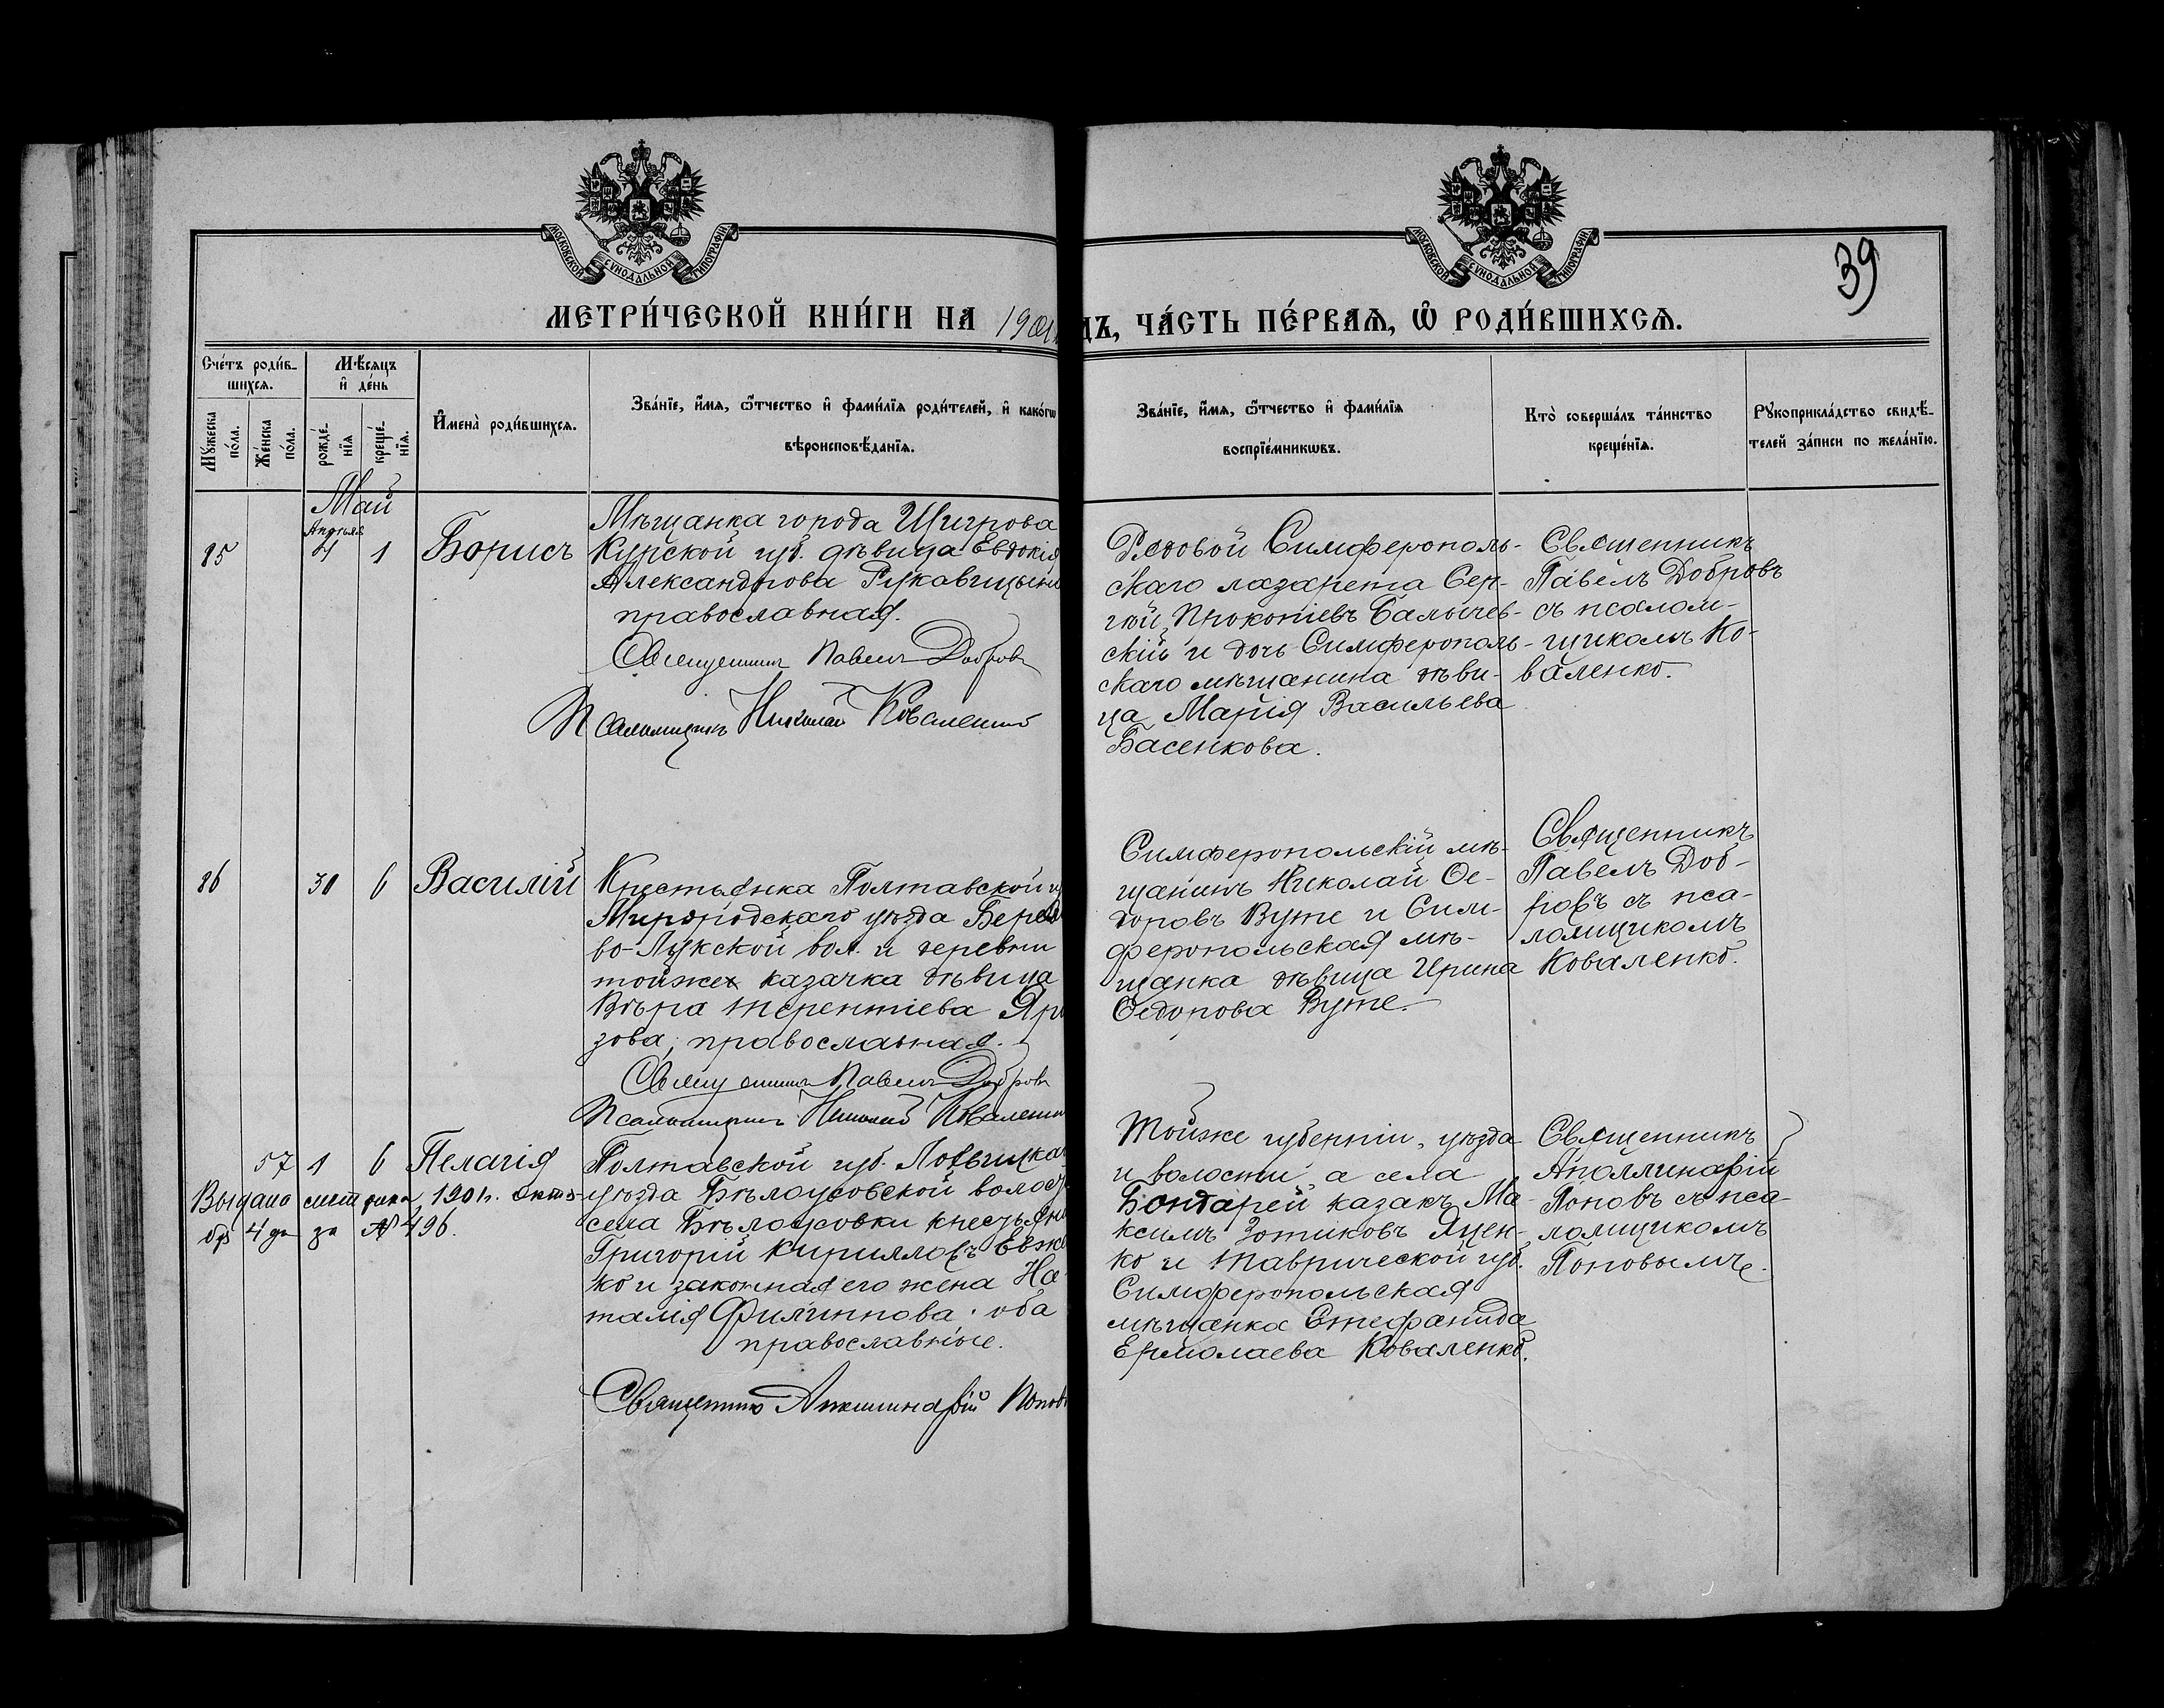 МОСКОВСКОЙ СѴНОДАЛЬНОЙ ТИПОГРАФІИ
МОСКОВСКОЙ СѴНОДАЛЬНОЙ ТИПОГРАФІИ
39
МЕТРИ́ЧЕСКОЙ КНИ́ГИ НА 1901
ДЪ, ЧА́СТЬ ПЕ́РВАѦ, Ѡ РОДИ́ВШИХСѦ.
Сче́тъ роди́в-
шихсѧ.
Мѣ́сѧцъ
и҆ де́нь
Мꙋ́жеска
по́ла.
Же́нска
по́ла.
рожде́-
нїѧ
креще́-
нїѧ.
И҆мена̀ роди́вшихсѧ.
Зва́нїе, и҆́мѧ, ѻ҆́тчество и҆ фами́лїѧ роди́телей, и҆ како́гѡ
вѣроисповѣ́данїѧ.
Зва́нїе, и҆́мѧ, ѻ҆́тчество и҆ фами́лїѧ
воспрїе́мникѡвъ.
Кто̀ соверша́лъ та́инство
креще́нїѧ.
Рꙋкоприкла́дство свидѣ́-
телей за́писи по жела́нїю.
Май
Апрѣля
85 1 Борисъ
Мѣщанка города Щигрова
Курской губ. дѣвица Евдокія
Александрова Рукавицына
православная.
Священникъ Павелъ Добровъ
Псаломщикъ Николай Коваленко
Рядовой Симферополь-
скаго лазарета Сер-
гѣй Прокопіевъ Балычев-
скій и дочь Симферополь-
скаго мѣщанина дѣви-
ца Марія Васильева
Басенкова.
Священникъ
Павелъ Добровъ
съ псалом-
щикомъ Ко-
валенко.
86 30 6 Василій
Крестьянка Полтавской
Миргородскаго уѣзда
во-Лукской вол. и деревни
тойже казачка дѣвица
Вѣра Терентіева
зова, православная.
Священникъ Павелъ Добровъ
Псаломщикъ Николай Коваленко
Симферопольскій мѣ-
щанинъ Николай Ѳе-
доровъ Вуте и Сим-
феропольская мѣ-
щанка дѣвица Ирина
Ѳедорова Вуте.
Священникъ
Павелъ Доб-
ровъ съ пса-
ломщикомъ
Коваленко.
57 1 6 Пелагія
Выдано метрика, 1901 г. октя-
бр 4 дн за № 496.
Полтавской губ. Лохвицка
уѣзда Бѣлоусовской волос
села Бѣлоусовки крестьян
Григорій Кирилловъ Евже
ко и законная его жена На-
талія Филиппова. оба
православные.
Священникъ Аполлинарій Поповъ
Тойже губерніи, уѣзда
и волости, а села
Бондарей казакъ Ма-
ксимъ Зотиковъ Яцен-
ко и Таврической губ.
Симферопольская
мѣщанка Стефанида
Ермолаева Коваленко.
Священникъ
Аполлинарій
Поповъ съ пса-
ломщикомъ
Поповымъ.